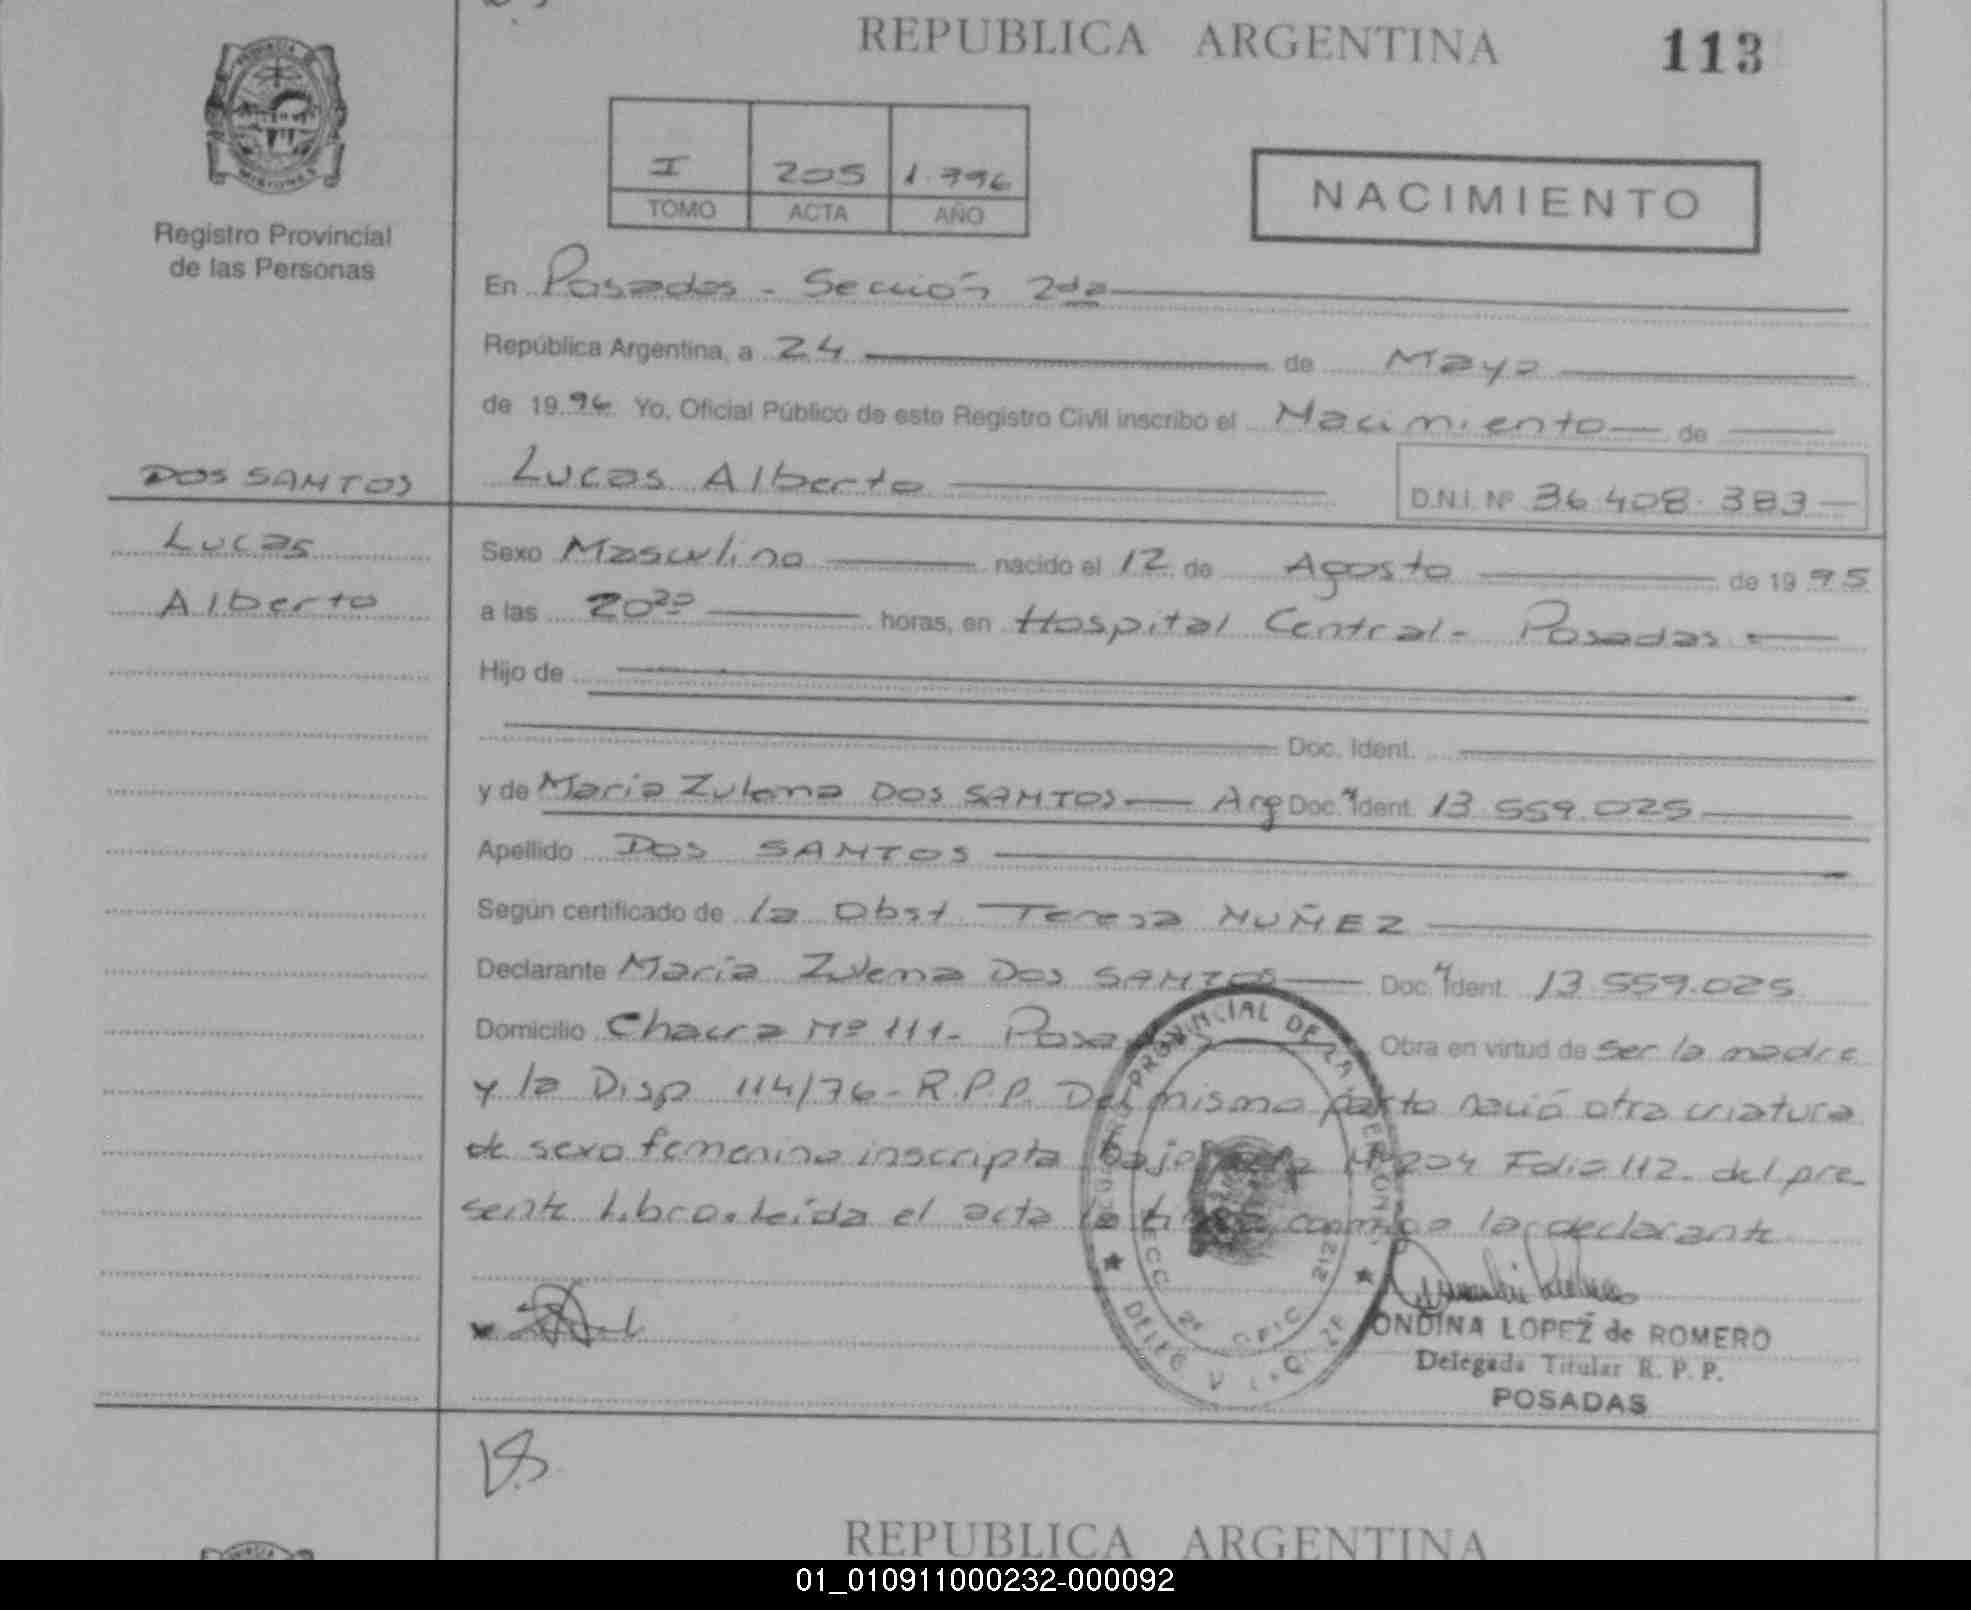 REPUBLICA ARGENTINA
113
PROVINCIA
MISIONES
Registro Provincial
de las Personas
I 205 1.996
TOMO ACTA AÑO
NACIMIENTO
En Posadas - Sección 2da
República Argentina, a 24 de Mayo
de 1996 Yo, Oficial Público de este Registro Civil inscribo el Nacimiento de
DOS SANTOS
Lucas Alberto
D.N.I. Nº 36.408.383
Lucas
Alberto
Sexo Masculino nacido el 12 de Agosto de 1995
a las 20 horas, en Hospital Central - Posadas
Hijo de
Doc. Ident.
y de Maria Zulema DOS SANTOS Arg Doc. Ident. 13.559.025
Apellido DOS SANTOS
Según certificado de la Obst. Teresa NUÑEZ
Declarante Maria Zulema Dos SANTOS Doc. Ident. 13.559.025
Domicilio Chacra Nº 111- Obra en virtud de ser la madre
y la Disp 114/76 - R.P.P. Del mismo parto nació otra criatura
de sexo femenino inscripta bajo Nº 204 Folio 112 - del pre
sente Libro. Leída el acta la conmigo la declarante
PROVINCIAL DE LA PERSONAS
SECC. 2ª OFIC. 212
DELEG
ONDINA LOPEZ de ROMERO
Delegada Titular R. P. P.
POSADAS
REPUBLICA ARGENTINA
01_010911000232-000092